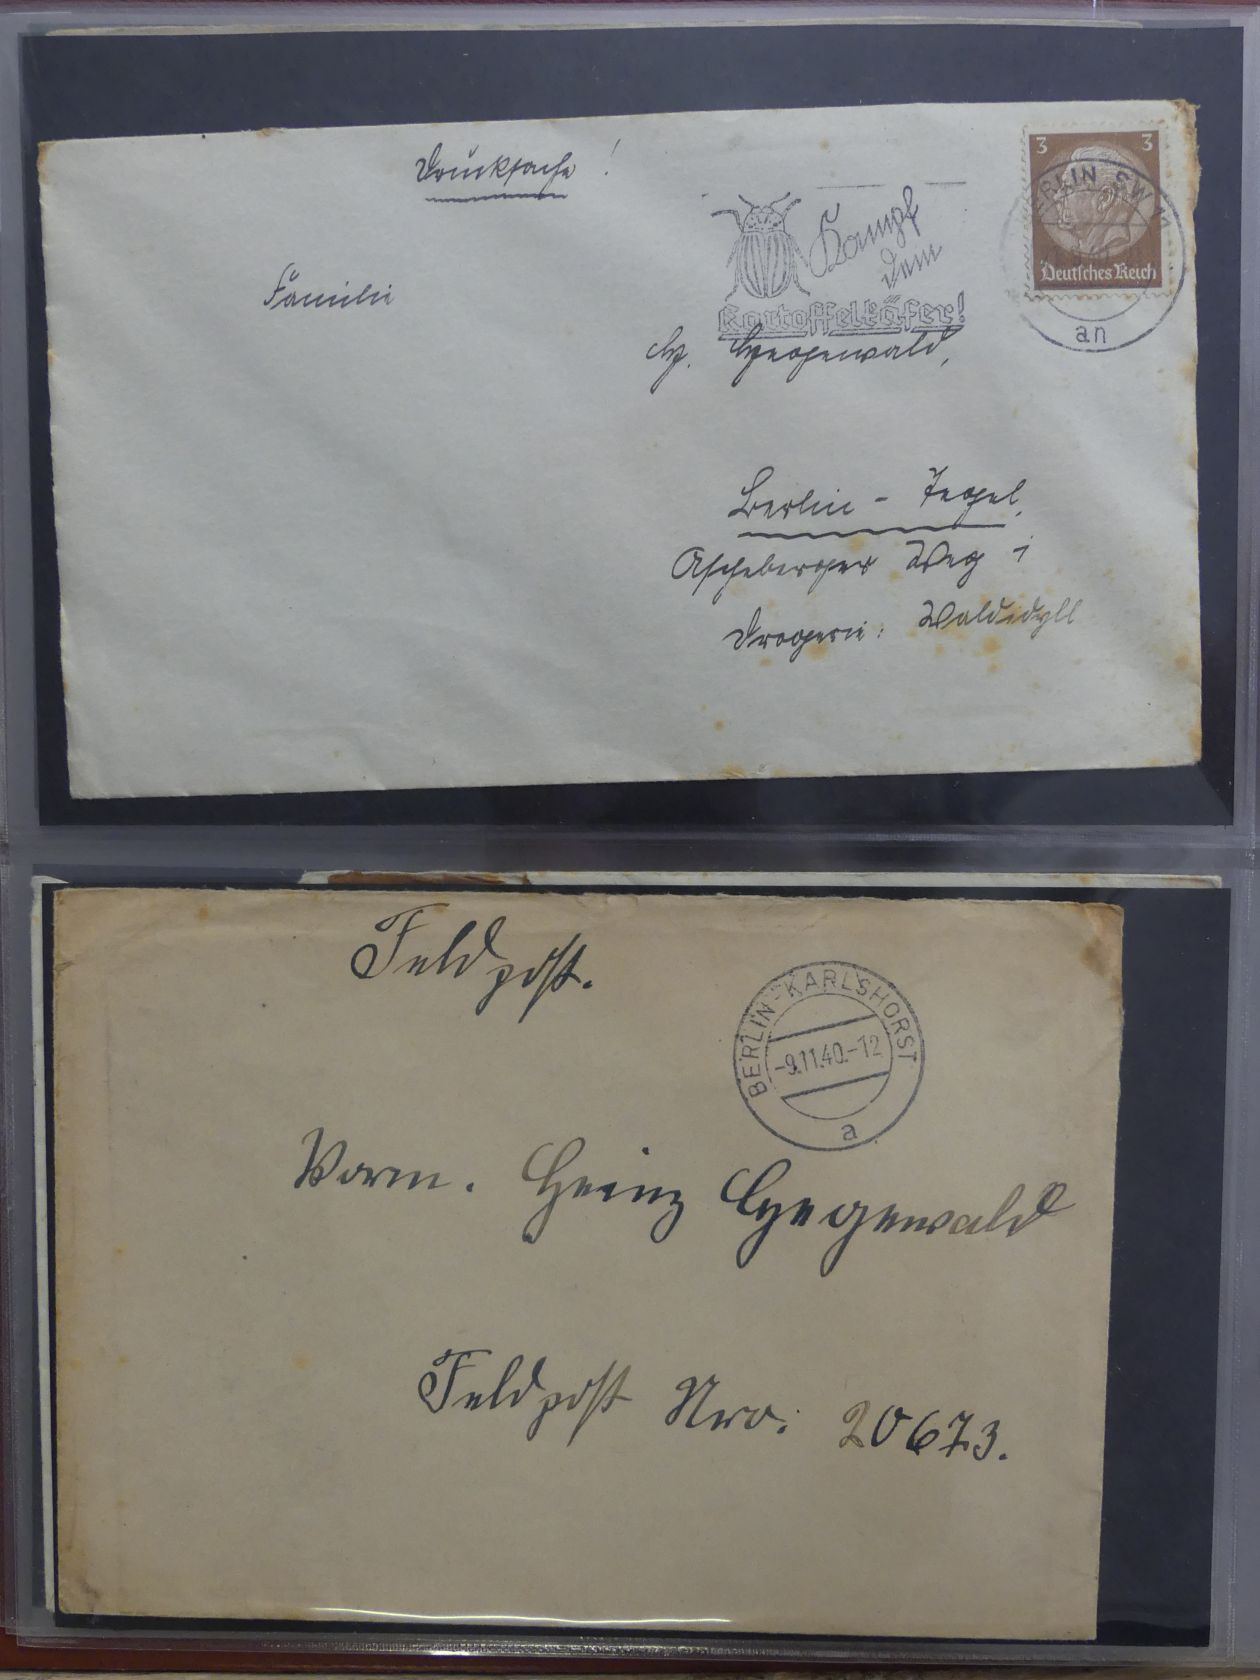 Drucksache!
3 3
BERLIN SW 11
Deutsches Reich
an
Kampf
dem
Kartoffelkäfer!
Familie
H. Hegewald,
Berlin-Tegel,
Ascheberger Weg 1
Drogerie: Waldidyll
Feldpost.
BERLIN-KARLSHORST
-9.11.40.-12
a
Heinz Hegewald
Feldpost Nro: 20673.